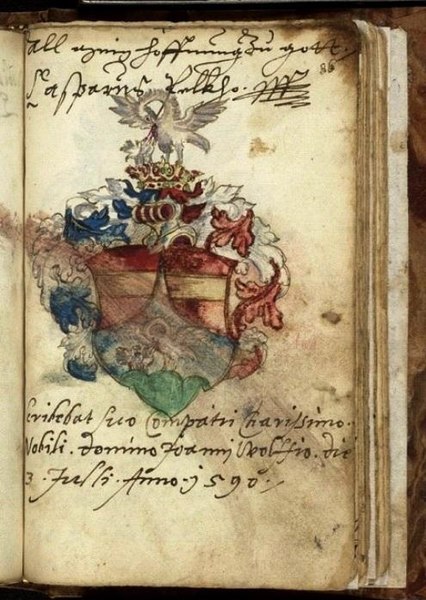 all einig hoffnung zu gott.
86
Casparus Pelkho.
scribebat suo Compatri charissimo.
Nobili. domino Joanni Wolfio. die
3. Julli. Anno. 1590.